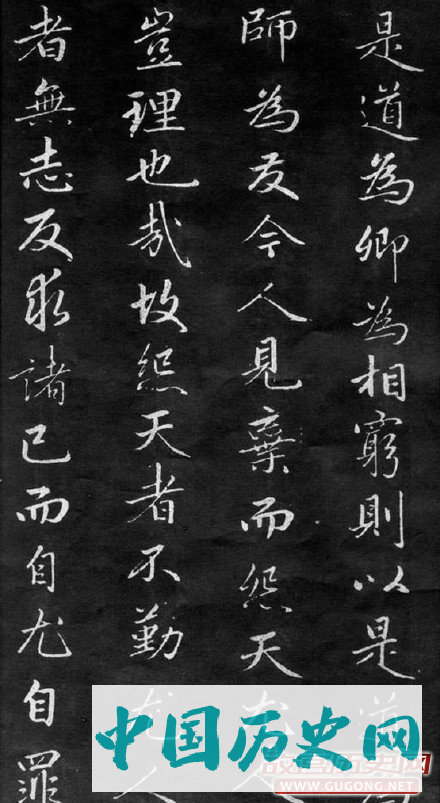 是道為卿為相窮則以是道
師為友今人見棄而怨天尤
豈理也哉故怨天者不勤尤人
者無志反求諸己而自尤自罪
中国历史网
WWW.GUGONG.NET